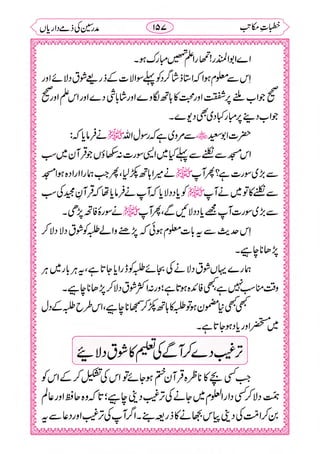 خطباتِ مکاتب ۱۵۷ مدرسین کی ذمے داریاں
اے ابوالمنذر! تمھارا علم تمھیں مبارک ہو۔
اس سے معلوم ہوا کہ استاذ شاگرد کو پہلے سوالات کے ذریعے شوق دلائے اور
صحیح جواب ملنے پر شفقتاً ہاتھ کا تھپکا لگاوے اور شاباشی دے اور اس علم اور صحیح
جواب دینے پر مبارک بادی بھی دیوے۔
حضرت ابوسعید سے مروی ہے کہ رسول اللہ ﷺ نے فرمایا کہ:
اس مسجد سے نکلنے سے پہلے میں ایک ایسی سورت نہ سکھاؤں جو قرآن میں سب
سے بڑی سورت ہے؟ پھر آپ ﷺ نے میرا ہاتھ پکڑ لیا، پھر جب ہمارا ارادہ مسجد
سے نکلنے کا ہوا تو میں نے آپ ﷺ کو یاد دلایا کہ آپ نے فرمایا تھا کہ قرآن مجید کی سب
سے بڑی سورت آپ مجھے یاد دلائیں گے، پھر آپ ﷺ نے سورۂ فاتحہ پڑھی۔
اس حدیث سے یہ بات معلوم ہوئی کہ پڑھنے والے طلبہ کو شوق دلا دلا کر
پڑھانا چاہیے۔
ہمارے یہاں شوق دلانے کی بجائے طلبہ کو ڈرایا جاتا ہے، یہ ہر بار میں ہر
وقت مناسب نہیں ہے، کبھی فائدہ بھی ہوتا ہے؛ ورنہ اکثر شوق دلا کر پڑھانا چاہیے۔
کبھی کبھی اپنا مضمون ہو تو طلبہ کا ہاتھ پکڑ کر سمجھانا چاہیے، اس طرح طلبہ کے دل
میں استحضار اور یاد ہو جاتا ہے۔
ترغیب دے کر آگے کی تعلیم کا شوق دلائیے
جب کسی بچے کا ناظرہ قرآن ختم ہو جائے تو اس کی تشکیل کر کے اس کو
تمنا دلا کر کسی دارالعلوم میں جانے کی ترغیب دینی چاہیے؛ تاکہ وہ حافظ اور عالم
بن کر امت کی دینی پیاس بجھانے کا ذریعہ بنے۔ اگر آپ کی ترغیب اور دعا سے یہ